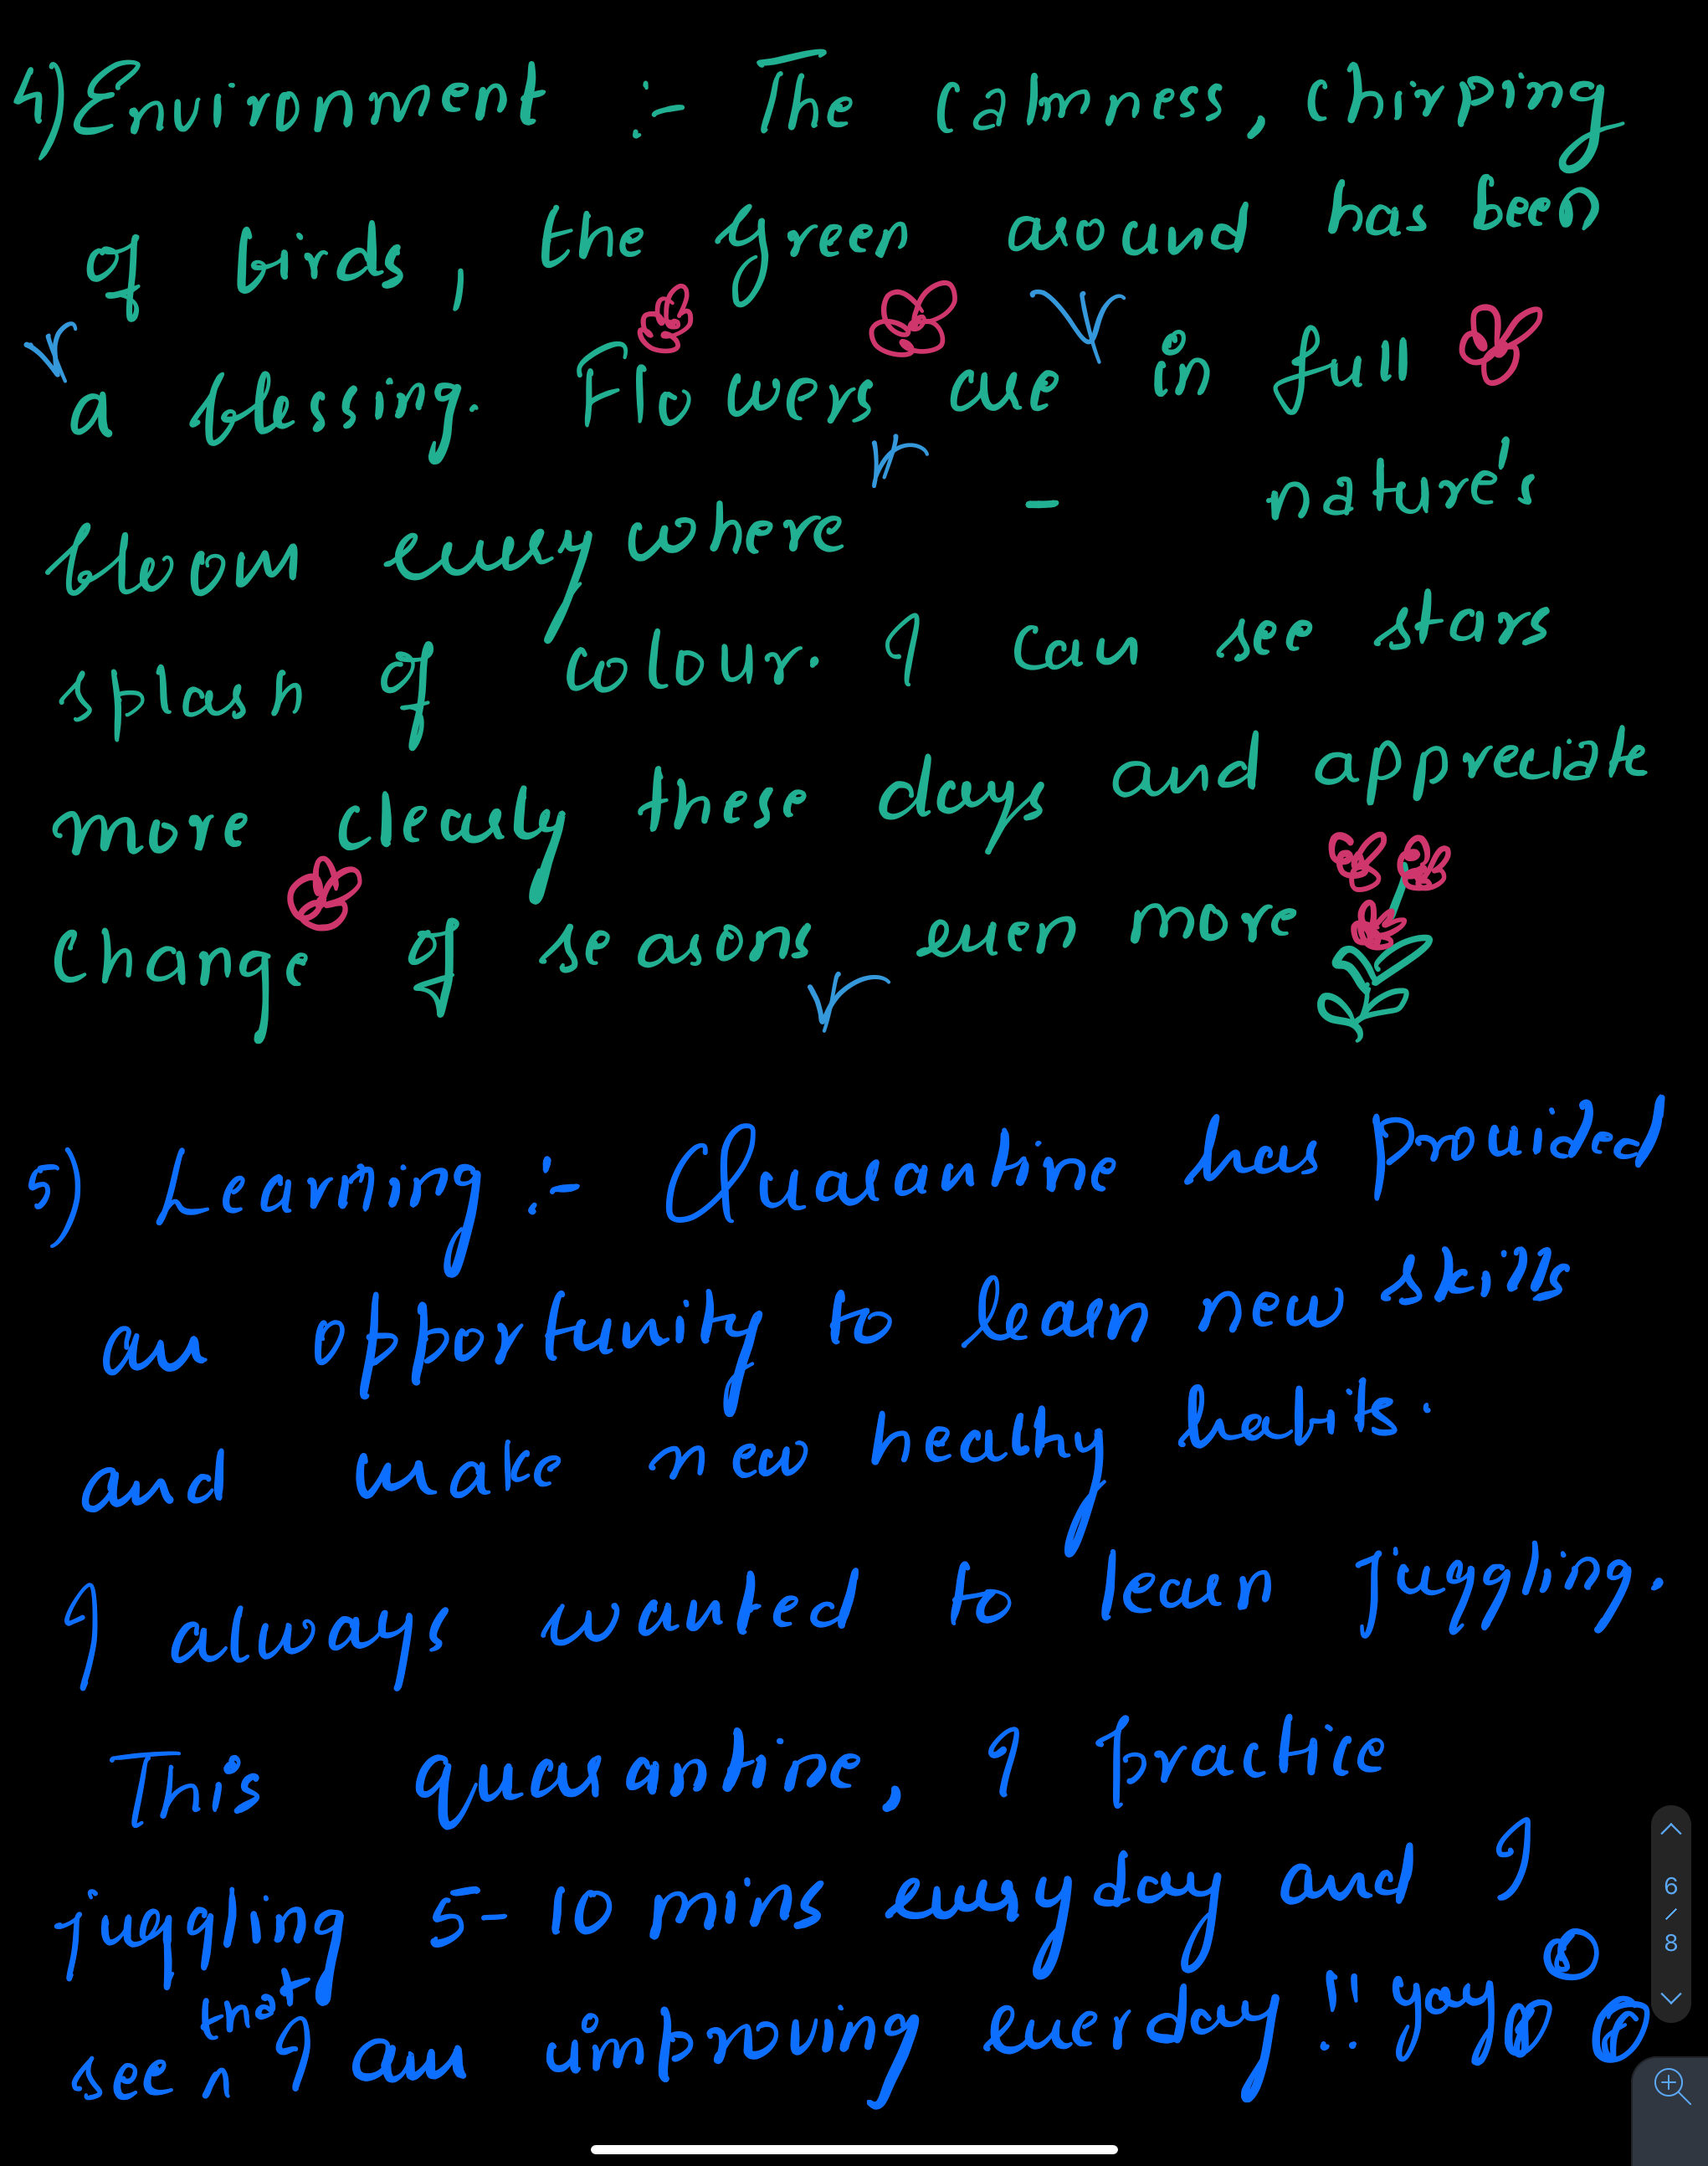 4) Environment :- The calmness, chirping
of birds, the green around has been
a blessing. Flowers are in full
bloom everywhere - nature's
splash of colour. I can see stars
more clearly these days and appreciate
change of seasons even more
5) Learning :- Quarantine has provided
an opportunity to learn new skills
and make new healhy habits.
I always wanted to learn juggling.
This quarantine, I practice
juggling 5-10 mins everyday and I
see that I am improving everday!! yay
6
/
8